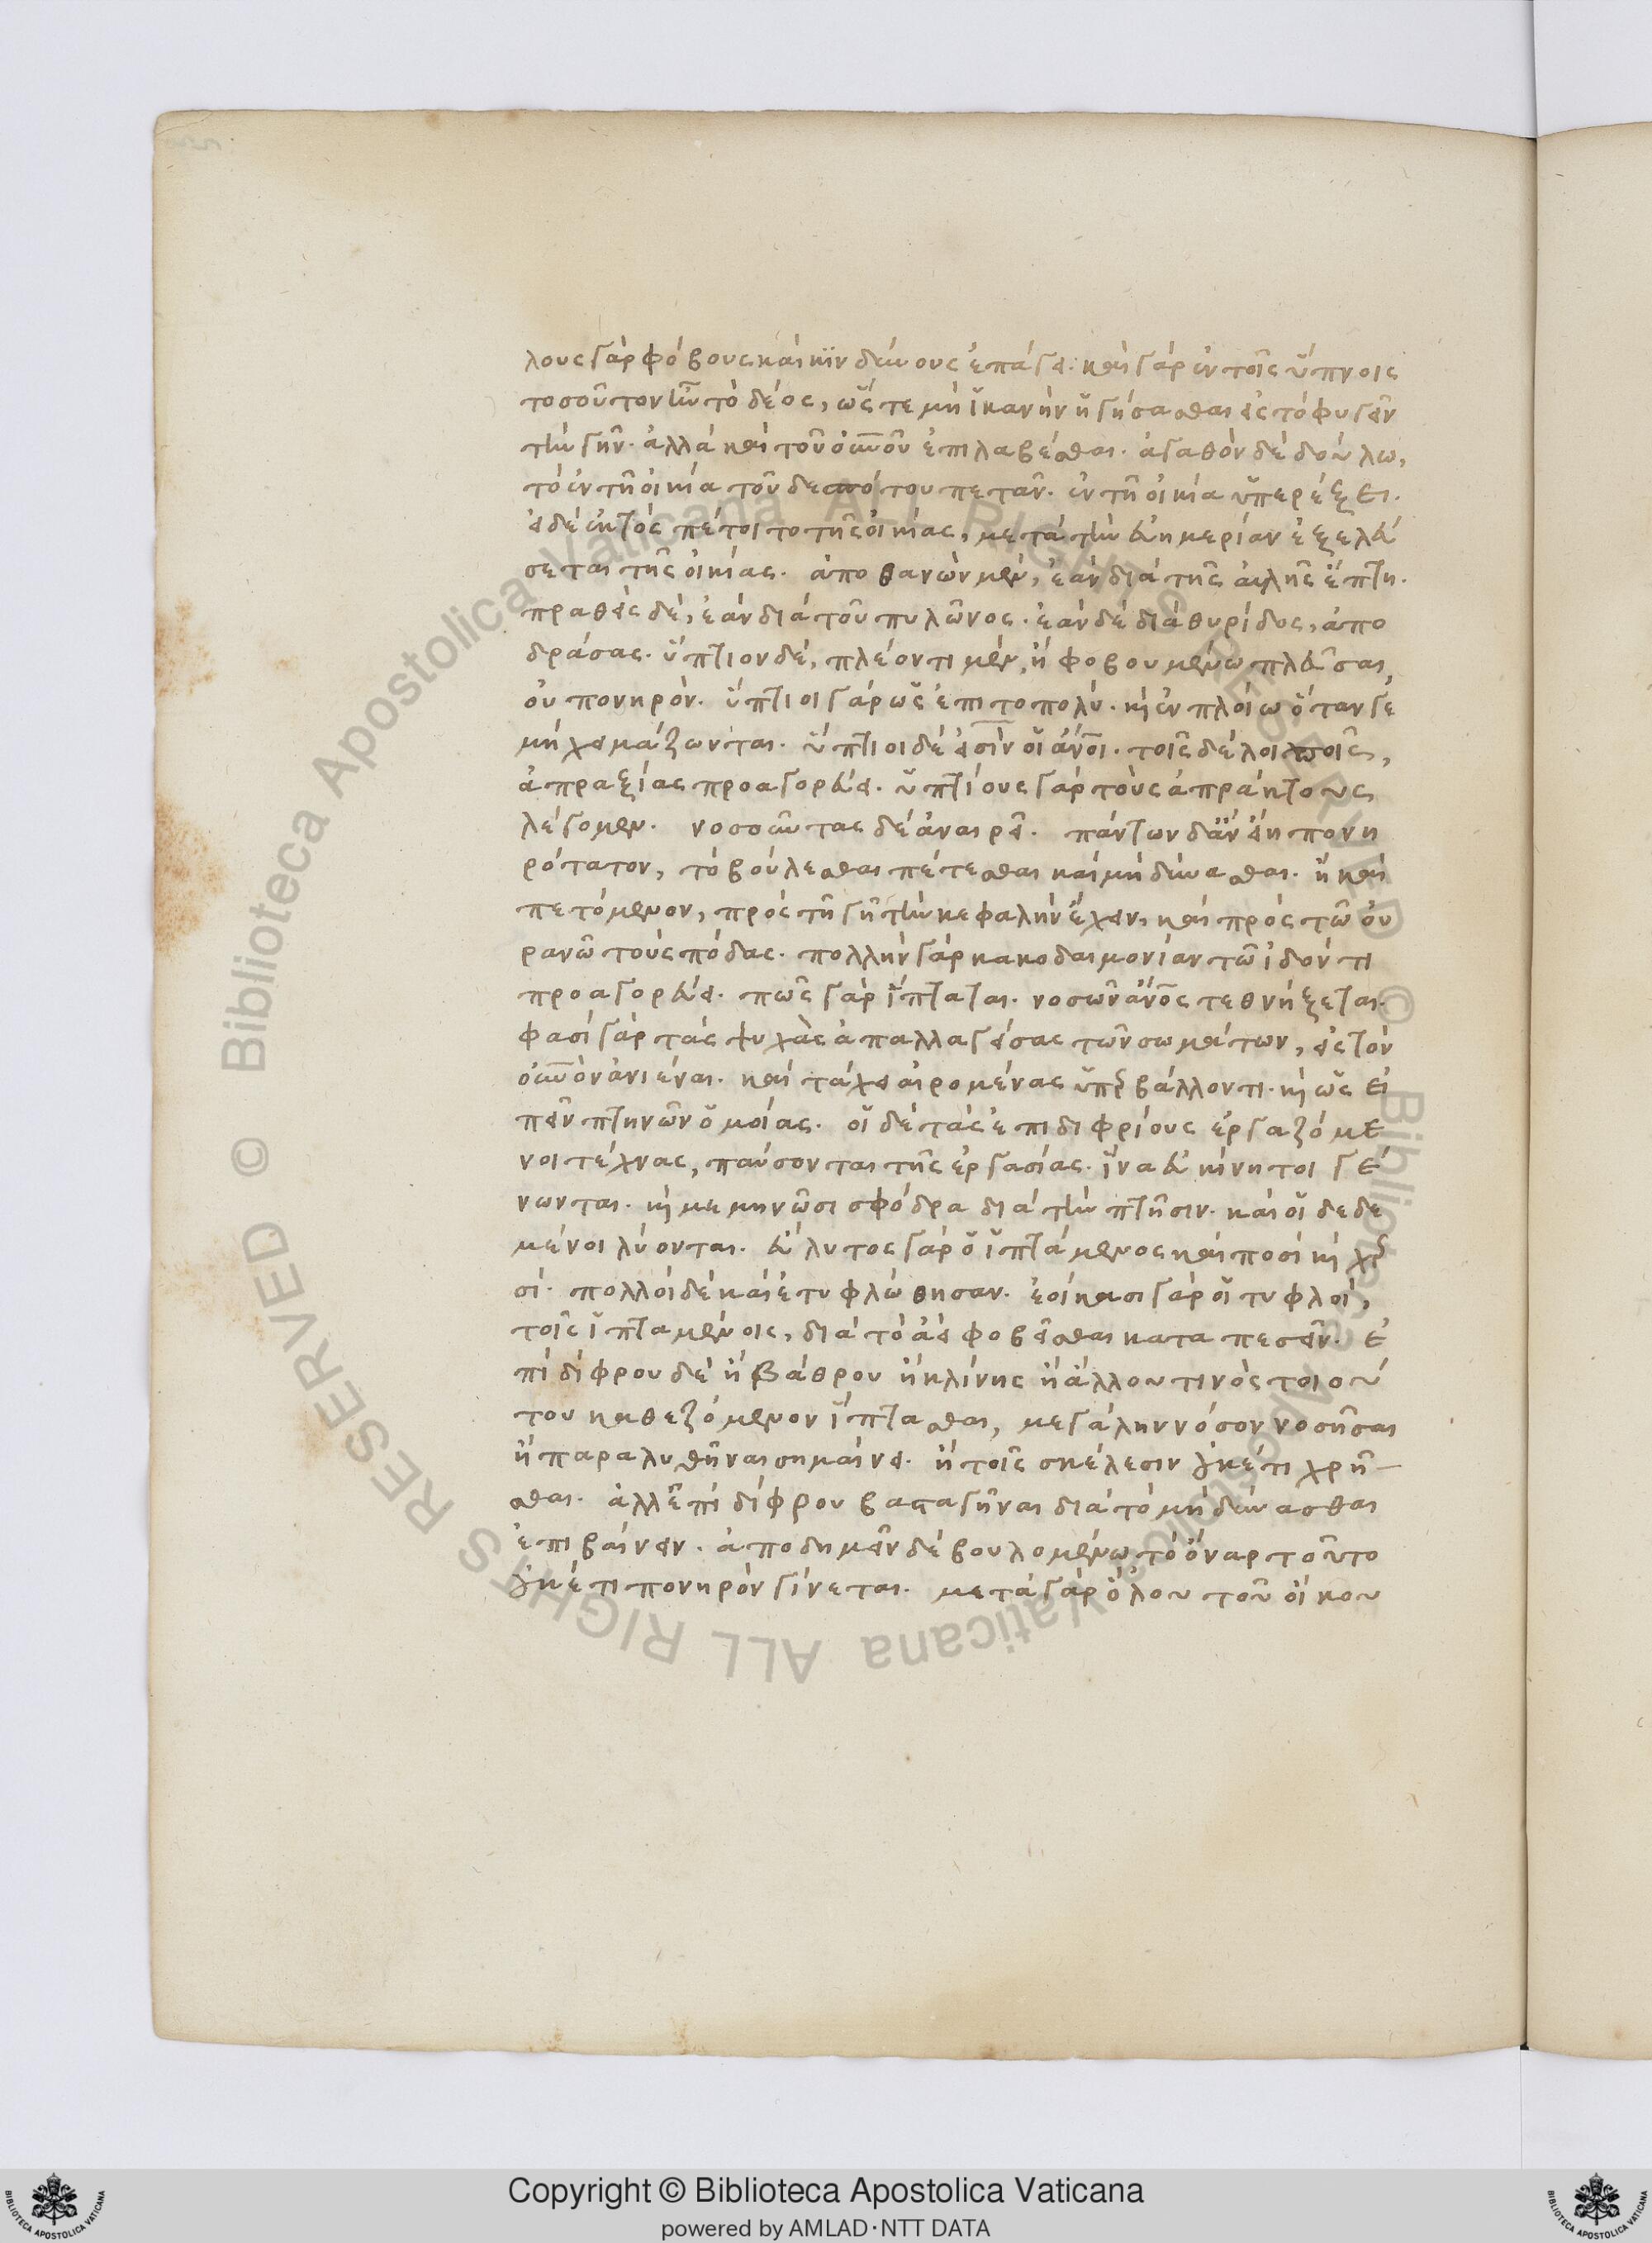 λους γὰρ φόβους καὶ κινδύνους ἐπάγει. καὶ γὰρ ἐν τοῖς ὕπνοις
τοσοῦτον ἦν τὸ δέος, ὥστε μὴ ἱκανὴν ἡγήσασθαι εἰς τὸ φυγεῖν
τὴν γῆν. ἀλλὰ καὶ τοῦ οὐνοῦ ἐπιλαβέσθαι. ἀγαθὸν δὲ δούλω,
τὸ ἐν τῆ οἰκία τοῦ δεσπότου πετᾶν. ἐν τῆ οἰκία ὑπερέξει.
εἰ δὲ ἐκτὸς πέτοιτο τῆς οἰκίας, μετὰ τὴν εὐημερίαν ἐξελεύ
σεται τῆς οἰκίας. ἀποθανὼν μὲν, ἐὰν διὰ τῆς αὐλῆς ἔπτη.
πραθεὶς δὲ, ἐὰν διὰ τοῦ πυλῶνος. ἐὰν δὲ διὰ θυρίδος, ἀπο
δράσας. ὕπτιον δὲ, πλέοντι μὲν, ἢ φοβουμένω πλεῦσαι,
οὐ πονηρόν. ὕπτιοι γὰρ ὡς ἐπιτοπολύ. κὶ ἐν πλοίω ὅταν γε
μὴ χειμάζωνται. ὕπτιοι δέ εἰσὶν οἱ ἄνοι. τοῖς δὲ λοιποῖς,
ἀπραξίας προαγορεύει. ὑπτίους γὰρ τοὺς ἀπράκτους
λέγομεν. νοσοῦντας δὲ ἀναιρεῖ. πάντων δ' ἂν εἴη πονη
ρότατον, τὸ βούλεσθαι πέτεσθαι καὶ μὴ δύνασθαι. ἢ καὶ
πετόμενον, πρὸς τῆ γῆ τὴν κεφαλὴν ἔχειν, καὶ πρὸς τῶ οὐ
ρανῶ τοὺς πόδας. πολλὴν γὰρ κακοδαιμονίαν τῶ ἰδόντι
προαγορεύει. πῶς γὰρ ἵπταται. νοσῶν ἄνος τεθνήξεται.
φασὶ γὰρ τὰς ψυχὰς ἀπαλλαγείσας τῶν σωμάτων, εἰς τὸν
οὐνὸν ἀνιέναι. καὶ τάχει αἰρομένας ὑπερβάλλοντι. κὶ ὡς εἰ
πεῖν πτηνῶν ὁμοίας. οἱ δὲ τὰς ἐπιδιφρίους ἐργαζόμε
νοι τέχνας, παύσονται τῆς ἐργασίας. ἵνα εὐκίνητοι γέ
νωνται. κὶ μεμηνῶσι σφόδρα διὰ τὴν πτῆσιν. καὶ οἱ δεδε
μένοι λύονται. εὔλυτος γὰρ ὁ ἱπτάμενος καὶ ποσὶ κὶ χερ
σί. πολλοὶ δὲ καὶ ἐτυφλώθησαν. ἐοίκασι γὰρ οἱ τυφλοὶ,
τοῖς ἱπταμένοις, διὰ τὸ ἀεὶ φοβεῖσθαι καταπεσεῖν. ἐ
πὶ δίφρου δὲ ἢ βάθρου ἢ κλίνης ἢ ἄλλου τινὸς τοιού
του καθεζόμενον ἵπτασθαι, μεγάλην νόσον νοσῆσαι
ἢ παραλυθῆναι σημαίνει. ἢ τοῖς σκέλεσιν οὐκέτι χρῆ
σθαι. ἀλλ' ἐπὶ δίφρου βασταγῆναι διὰ τὸ μὴ δύνασθαι
ἐπιβαίνειν. ἀποδημεῖν δὲ βουλομένω τὸ ὄναρ τοῦτο
οὐκέτι πονηρὸν γίνεται. μετὰ γὰρ ὅλου τοῦ οἴκου
Copyright © Biblioteca Apostolica Vaticana
powered by AMLAD·NTT DATA
© Biblioteca Apostolica Vaticana ALL RIGHTS RESERVED © Biblioteca Apostolica Vaticana ALL RIGHTS RESERVED
BIBLIOTECA APOSTOLICA VATICANA
BIBLIOTECA APOSTOLICA VATICANA